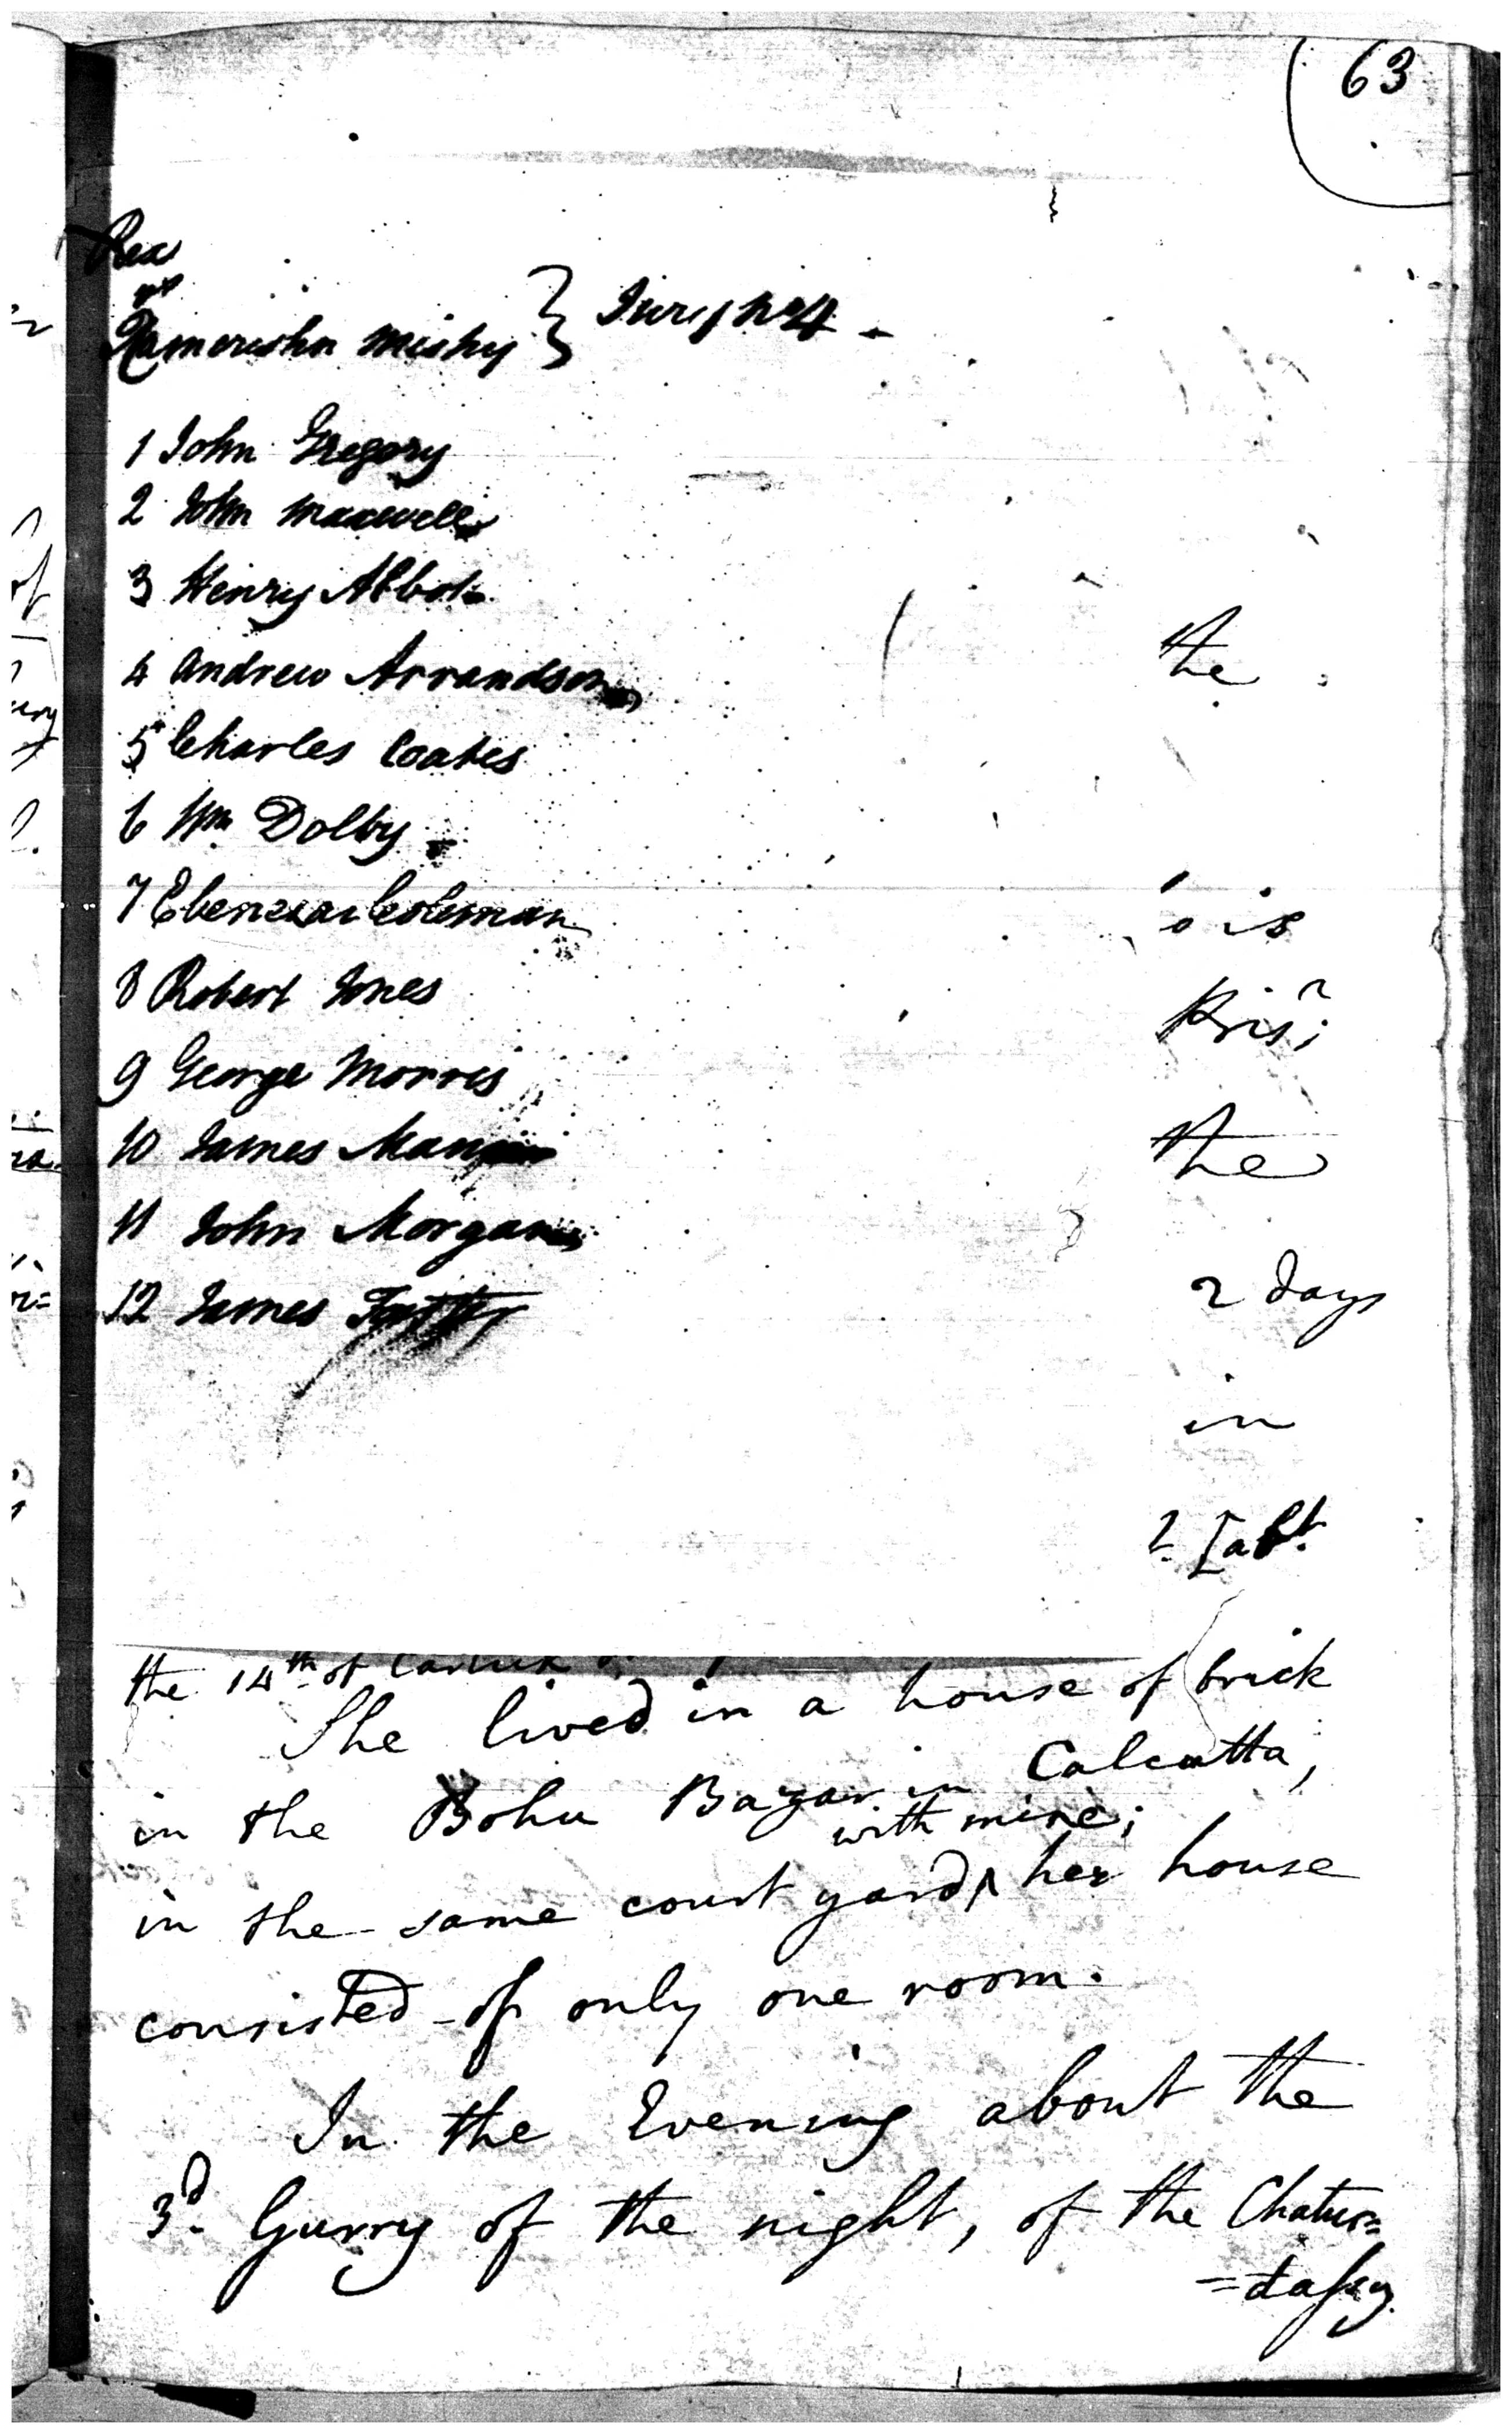 63
Rex
vs
Ramcrishn Mishy } Jury No 4 -
1 John Gregory
2 John Maxwell
3 Henry Abbot
4 Andrew Arrandson
5 Charles Coates
6 Wm Dolby
7 Ebenezar Coleman
8 Robert Jones
9 George Morris
10 James
11 John Morgan
12 James
the
is
the
2 days
in
the 14th of Cartick
She lived in a house of brick
in the Bohu Bazar in Calcutta,
with mine;
in the same court yard ^ her house
consisted of only one room.
In the Evening about the
3d. Gurry of the night, of the Chatur=
=dassy